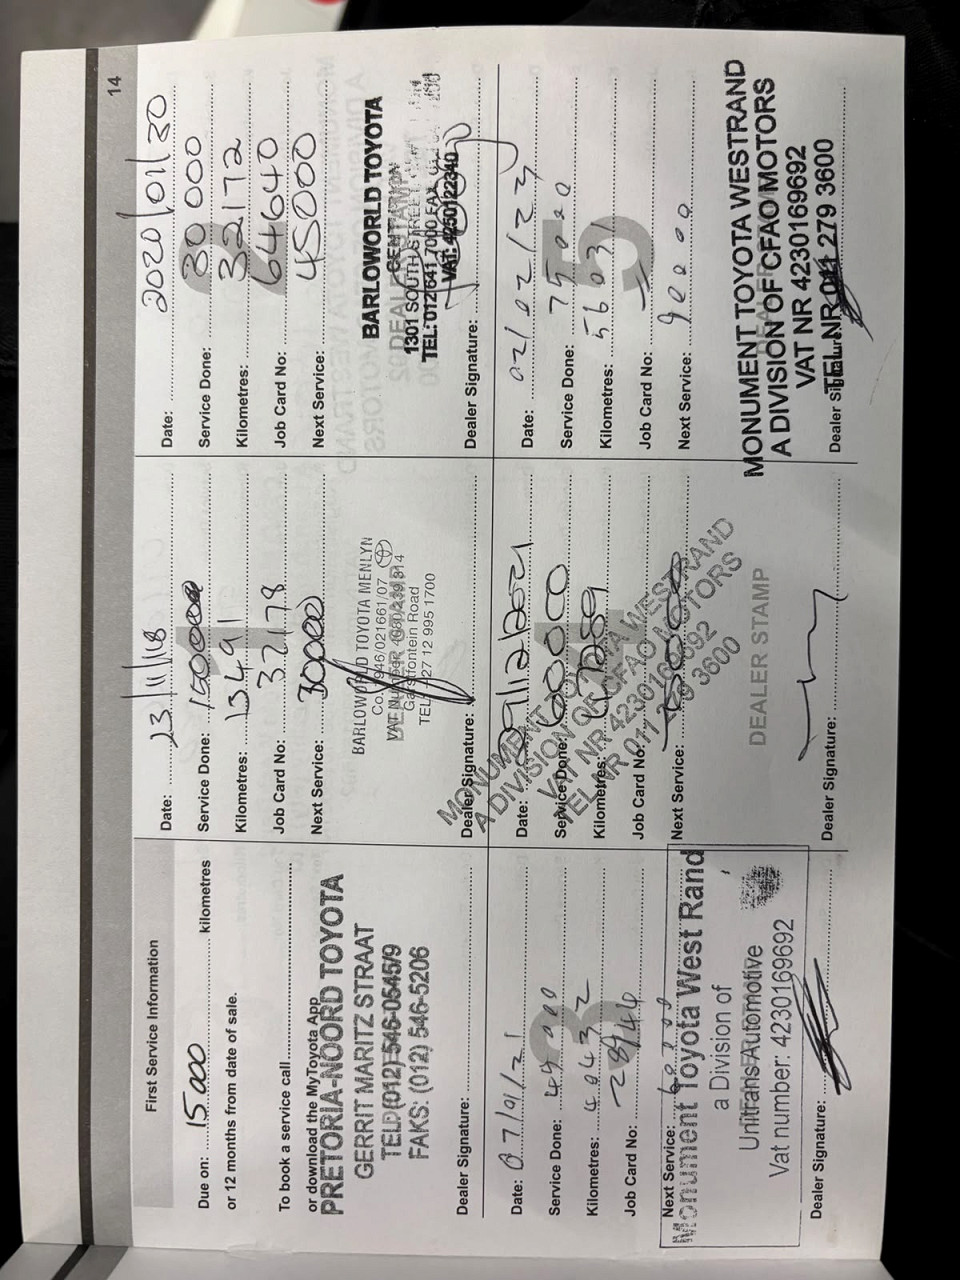 14
First Service Information
Due on: 15 000 kilometres
or 12 months from date of sale.
To book a service call
or download the MyToyota App
PRETORIA-NOORD TOYOTA
GERRIT MARITZ STRAAT
TEL (012) 546-0545/9
FAKS: (012) 546-5206
Dealer Signature:
1
Date: 23/11/18
Service Done: 15000
Kilometres: 13491
Job Card No: 32178
Next Service: 30000
BARLOWORLD TOYOTA MENLYN
Garstfontein Road
TEL: +27 12 995 1700
Dealer Signature:
2
Date: 2020/01/30
Service Done: 30 000
Kilometres: 32172
Job Card No: 64640
Next Service: 45000
BARLOWORLD TOYOTA
CENTURION
1301 SOUTH STREET
TEL: 012 641 7000 FAX
VAT: 4250122340
Dealer Signature:
3
Date: 07/01/21
Service Done:
Kilometres:
Job Card No: 28944
Next Service:
Monument Toyota West Rand
a Division of
Unitrans Automotive
Vat number: 4230169692
Dealer Signature:
4
Date:
Service Done: 60000
Kilometres:
Job Card No:
Next Service: 75000
MONUMENT TOYOTA WESTRAND
A DIVISION OF CFAO MOTORS
VAT NR 4230169692
TEL NR 011 279 3600
DEALER STAMP
Dealer Signature:
5
Date: 02/02/23
Service Done: 75000
Kilometres: 56031
Job Card No:
Next Service: 90000
MONUMENT TOYOTA WESTRAND
A DIVISION OF CFAO MOTORS
VAT NR 4230169692
TEL NR 011 279 3600
Dealer Signature: